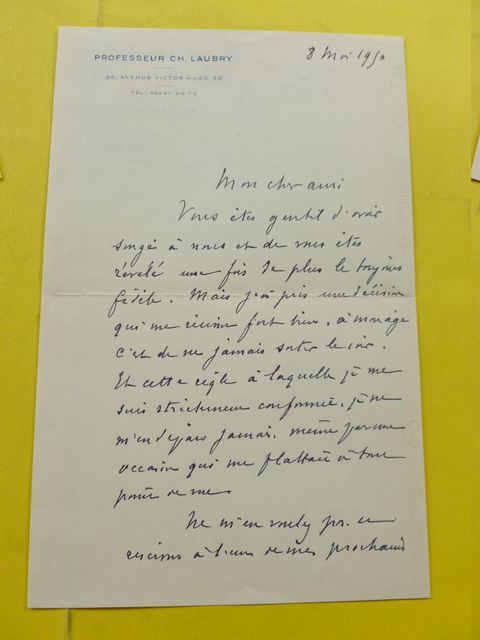 PROFESSEUR CH. LAUBRY
39, AVENUE VICTOR-HUGO 39
TÉL: PASSY 00-72
8 Mai 1950
Mon cher ami
Vous êtes gentil d'avoir
songé à nous et de vous être
révélé une fois de plus le toujours
fidèle. Mais j'ai pris une décision
qui me réussit fort bien, à mon âge
c'est de ne jamais sortir le soir.
Et cette règle à laquelle je me
suis strictement conformé, je ne
m'en dépars jamais, même pour une
occasion qui me flattait à tout
point de vue.
Ne m'en voulez pas. et
à l'une de mes prochains